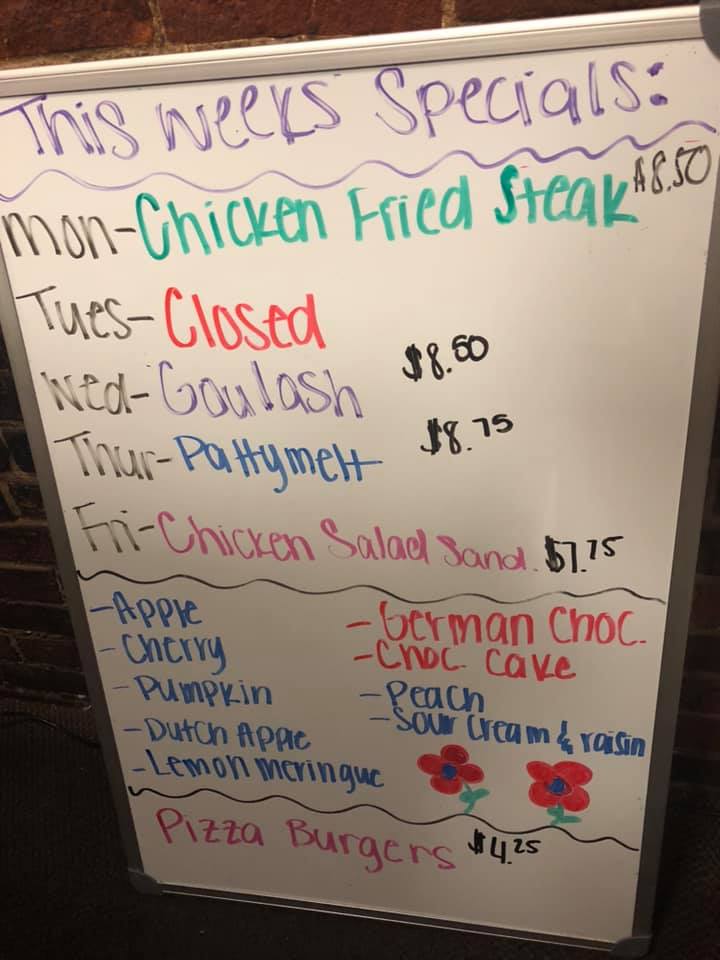 This weeks Specials:
Mon-Chicken Fried Steak $8.50
Tues-Closed
Wed-Goulash $8.50
Thur-Pattymelt $8.75
Fri-Chicken Salad Sand. $7.75
-Apple
-Cherry
-Pumpkin
-Dutch Apple
-Lemon meringue
-German Choc.
-Choc. Cake
-Peach
-Sour Cream & raisin
Pizza Burgers $4.25